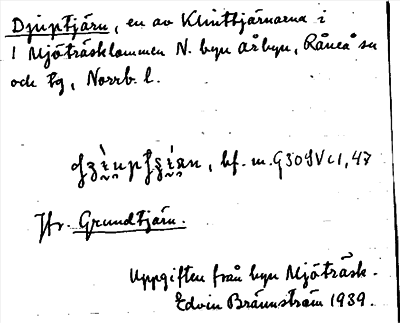 Djuptjärn, en av Klinttjärnarna i
1 Mjöträsklammen N. byn Årbyn, Råneå sn
och tg, Norrb. l.
bf. m. G30SV c1, 47
Jfr. Grundtjärn.
Uppgiften från byn Mjöträsk.
Edvin Brännström 1939.